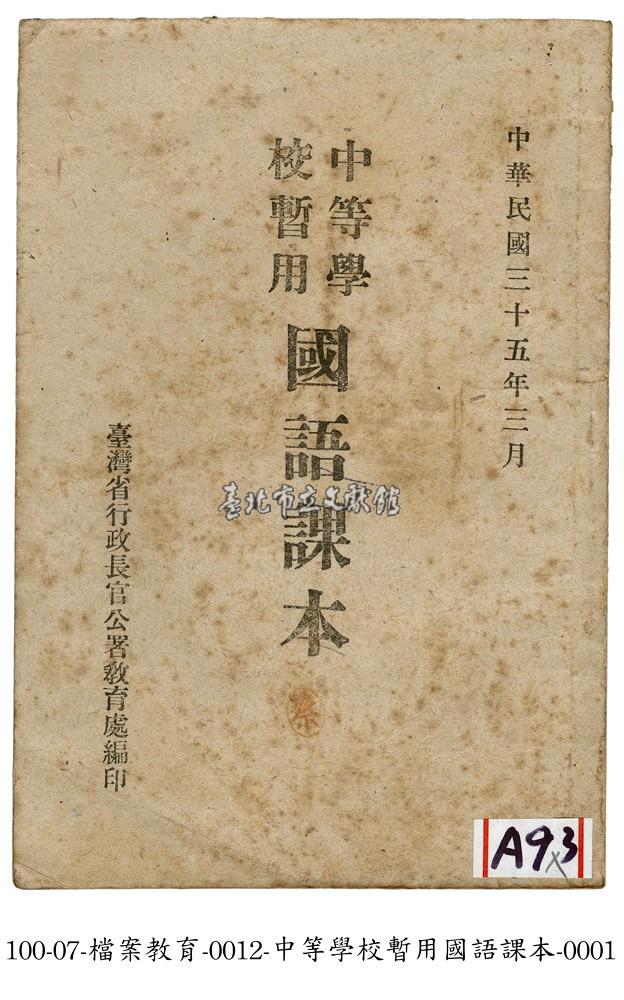 中華民國三十五年三月
中等學
校暫用
國語課本
臺灣省行政長官公署教育處編印
臺北市立文獻館
蔡
A93
100-07-檔案教育-0012-中等學校暫用國語課本-0001